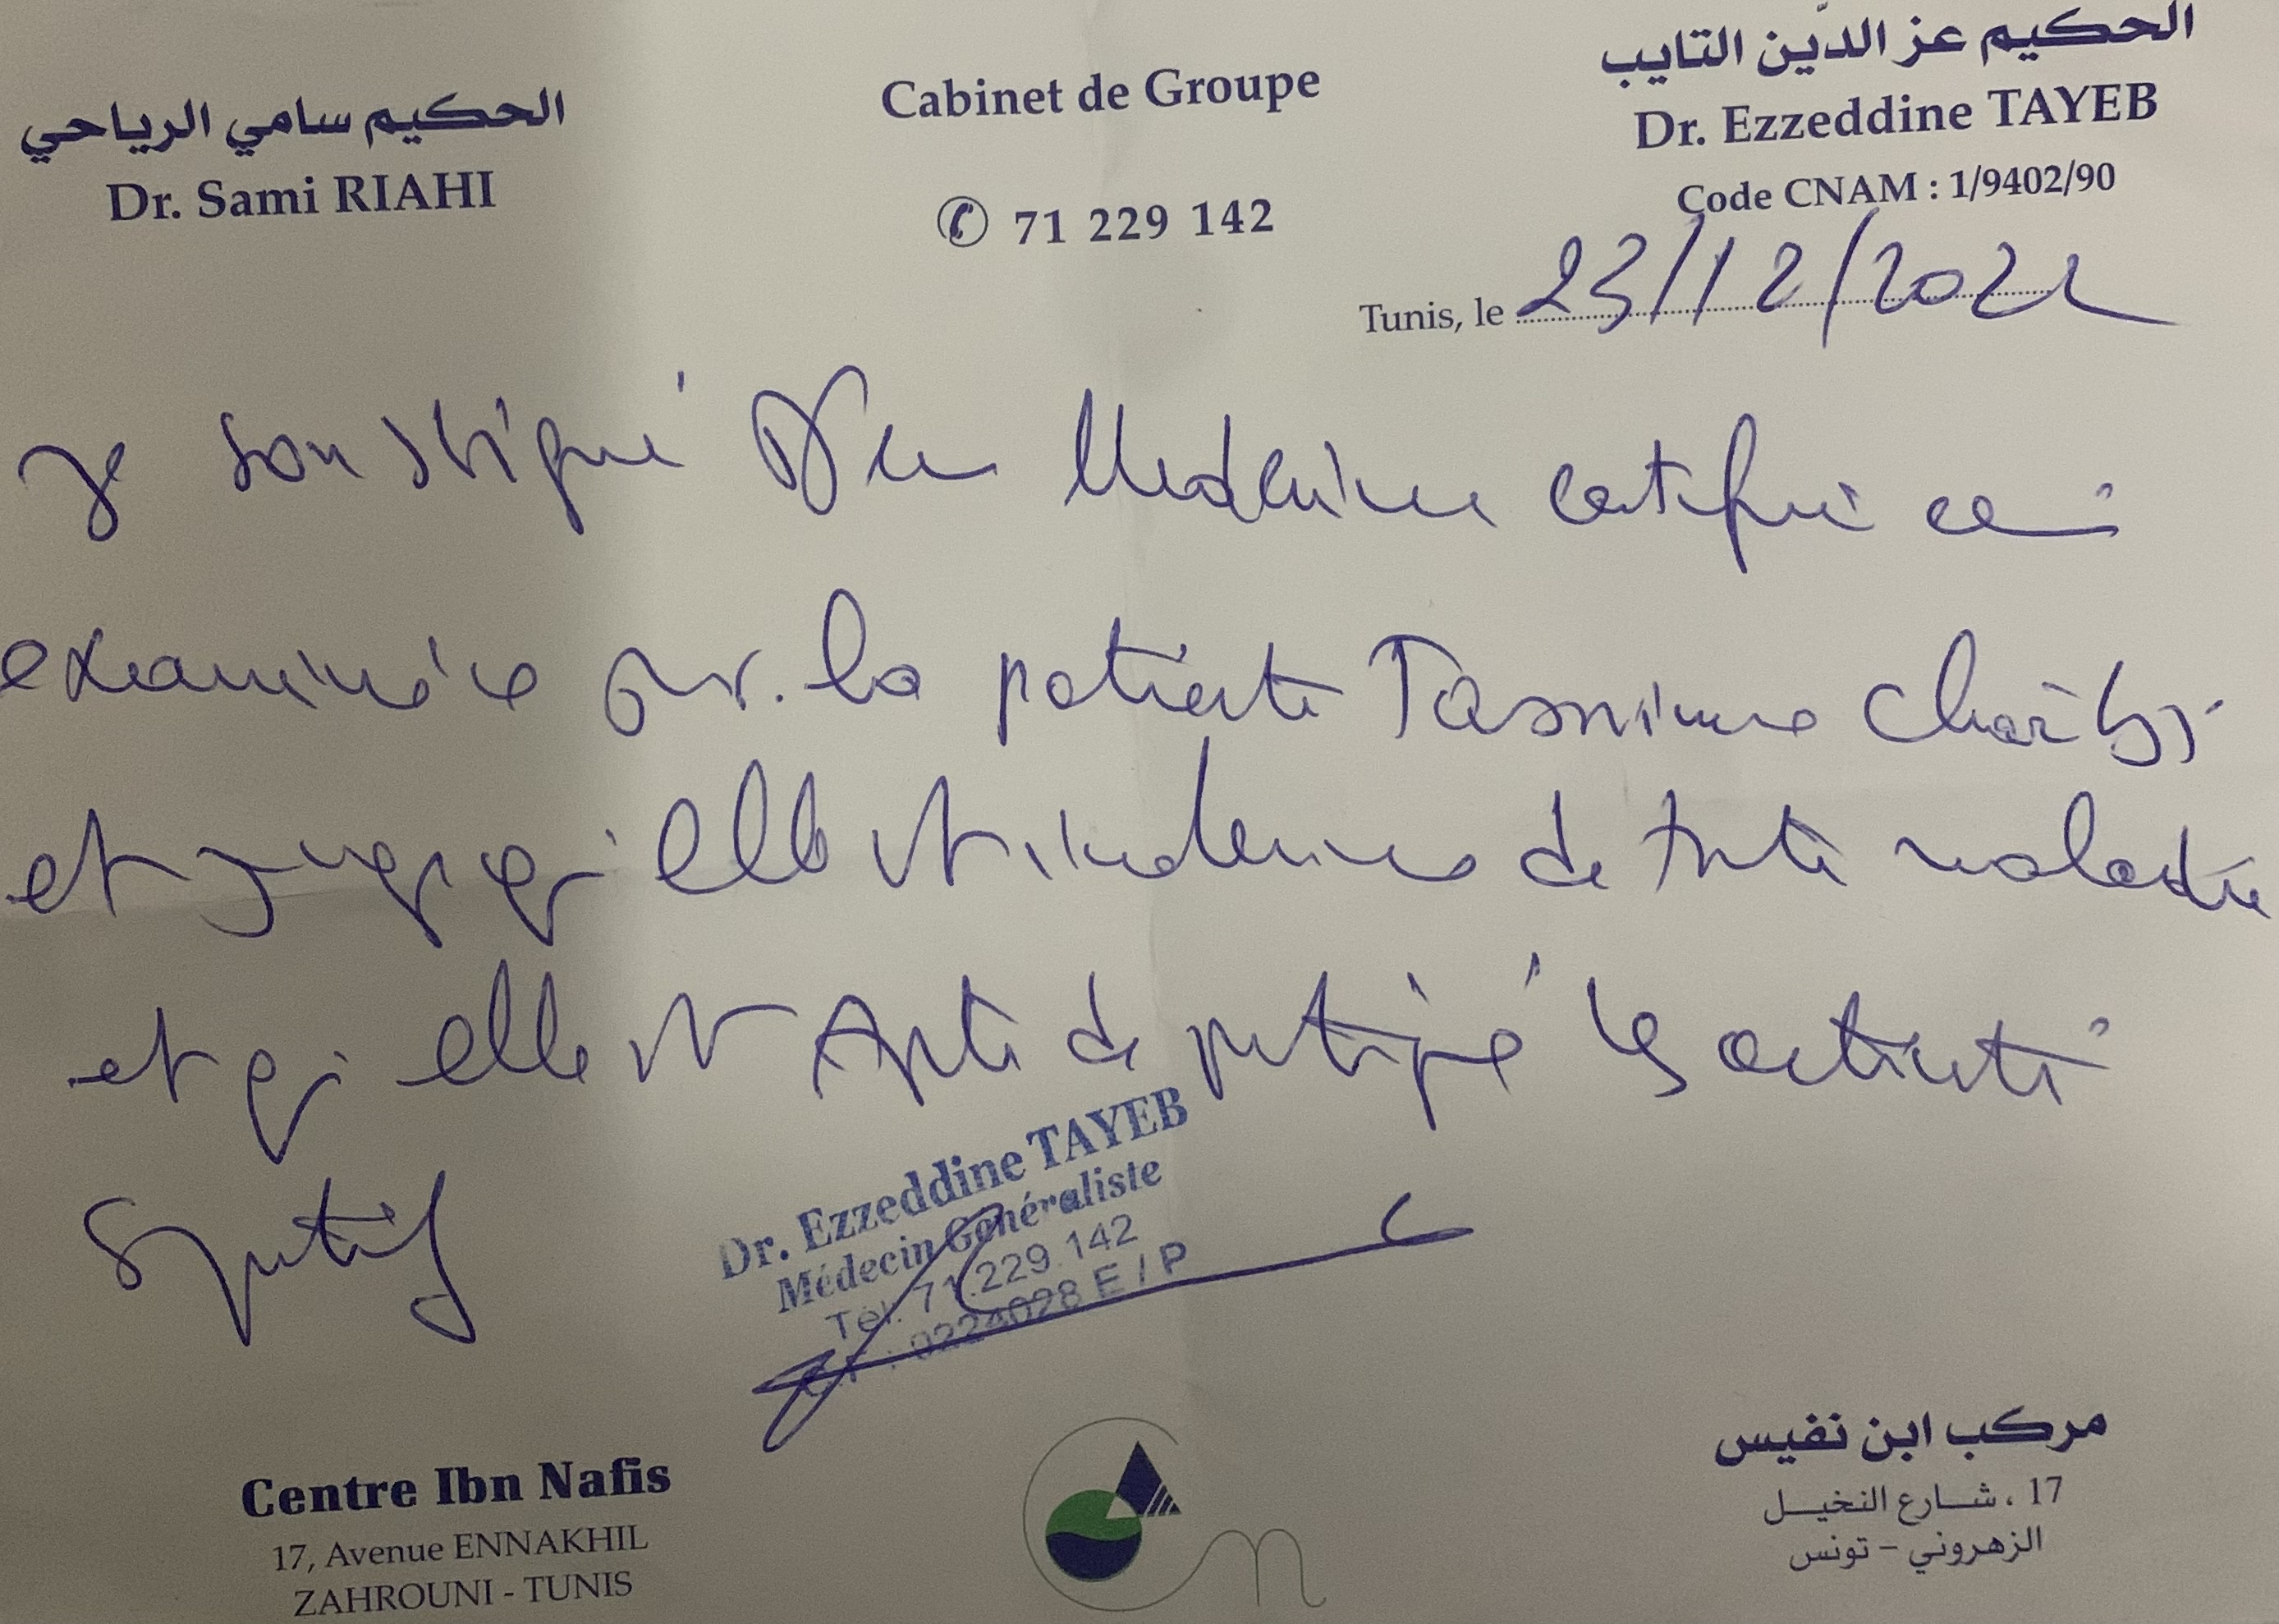 الحكيم سامي الرياحي
Dr. Sami RIAHI
Cabinet de Groupe
✆ 71 229 142
الحكيم عز الدّين التايب
Dr. Ezzeddine TAYEB
Code CNAM : 1/9402/90
Tunis, le 23/12/2022
Je soussigné Dr en Medecine certifie
examinée la patiente Tasnime
et qu'elle est indemne de toute maladie
et qu'elle est Apte de pratiqué les activité
Sportif
Dr. Ezzeddine TAYEB
Médecin Généraliste
Tél. 71.229 142
E / P
Centre Ibn Nafis
17, Avenue ENNAKHIL
ZAHROUNI - TUNIS
مركب ابن نفيس
17 ، شارع النخيل
الزهروني - تونس